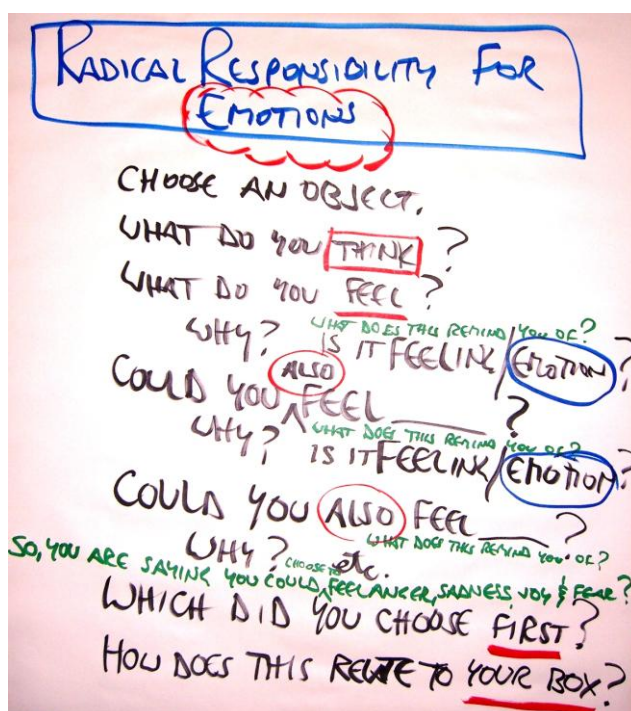 RADICAL RESPONSIBILITY FOR
EMOTIONS
CHOOSE AN OBJECT.
WHAT DO YOU THINK?
WHAT DO YOU FEEL?
WHAT DOES THIS REMIND YOU OF?
WHY? IS IT FEELING/EMOTION?
ALSO
COULD YOU ^ FEEL ____?
WHAT DOES THIS REMIND YOU OF?
WHY? IS IT FEELING/EMOTION?
COULD YOU ALSO FEEL ____?
WHY? etc. WHAT DOES THIS REMIND YOU OF?
CHOOSE TO
SO, YOU ARE SAYING YOU COULD ^ FEEL ANGER, SADNESS, JOY & FEAR?
WHICH DID YOU CHOOSE FIRST?
HOW DOES THIS RELATE TO YOUR BOX?